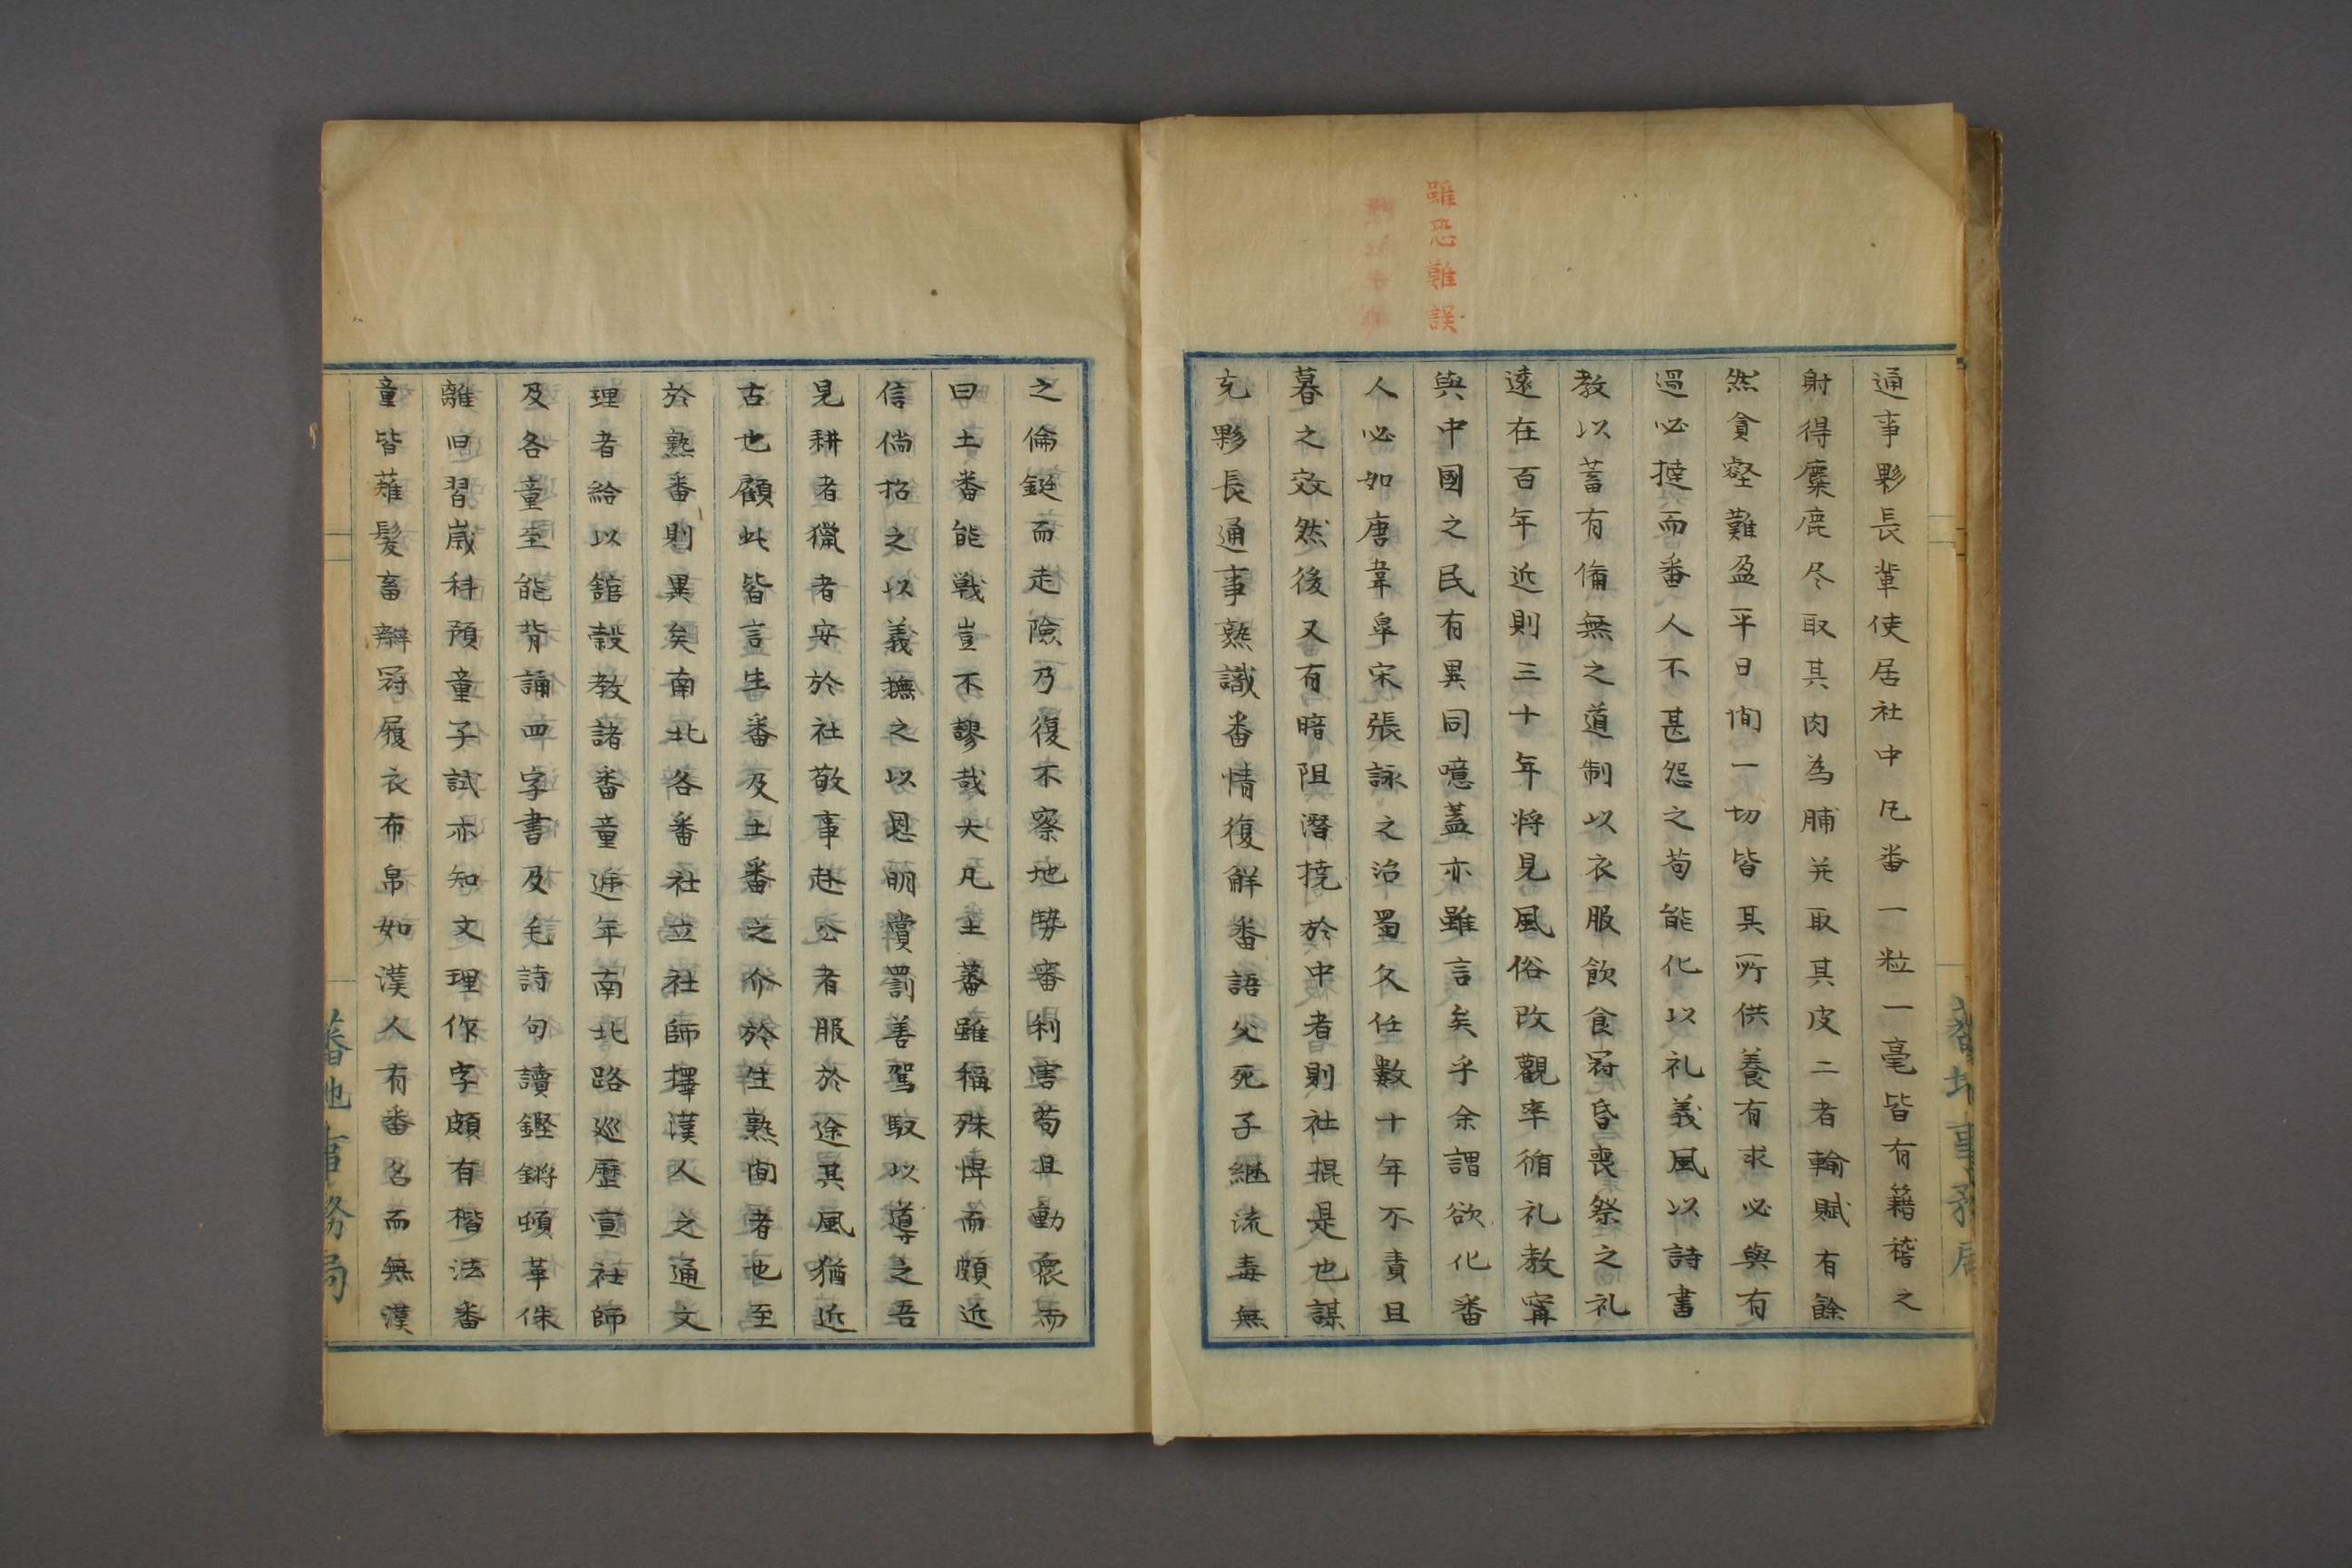 雖恐難誤
通事夥長輩使居社中凡番一粒一毫皆有籍稽之
射得麋鹿尽取其肉為脯并取其皮二者輸賦有餘
然貪壑難盈平日间一切皆其所供養有求必與有
過必撻而番人不甚怨之苟能化以礼義風以詩書
教以蓄有俻無之道制以衣服飲食冠昏喪祭之礼
遠在百年近則三十年将見風俗改觀率循礼教寧
與中國之民有異同噫蓋亦雖言矣乎余謂欲化番
人必如唐韋皐宋張詠之治蜀久任數十年不責且
暮之效然後又有暗阻潛撓於中者則社掍是也謀
充夥長通事熟識番情復解番語父死子継流毒無
之倫鋌而走險乃復不察地勢審利害苟且動衆而
曰土番能戰豈不謬哉大凡土蕃雖稱殊悍而頗近
信倘招之以義撫之以恩明賞罰善駕馭以導之吾
見耕者獵者安於社敬事赴公者服於途其風猶近
古也顧此皆言生番及土番之介於生熟间者也至
於熟番則異矣南北各番社立社師擇漢人之通文
理者給以舘穀教諸番童递年南北路巡歷宣社師
及各童至能背誦四字書及毛詩句讀鏗鏘頓革侏
離旧習歲科預童子試亦知文理作字頗有楷法番
童皆薙髮畜辮冠履衣布帛如漢人有番名而無漢
蕃地事務局